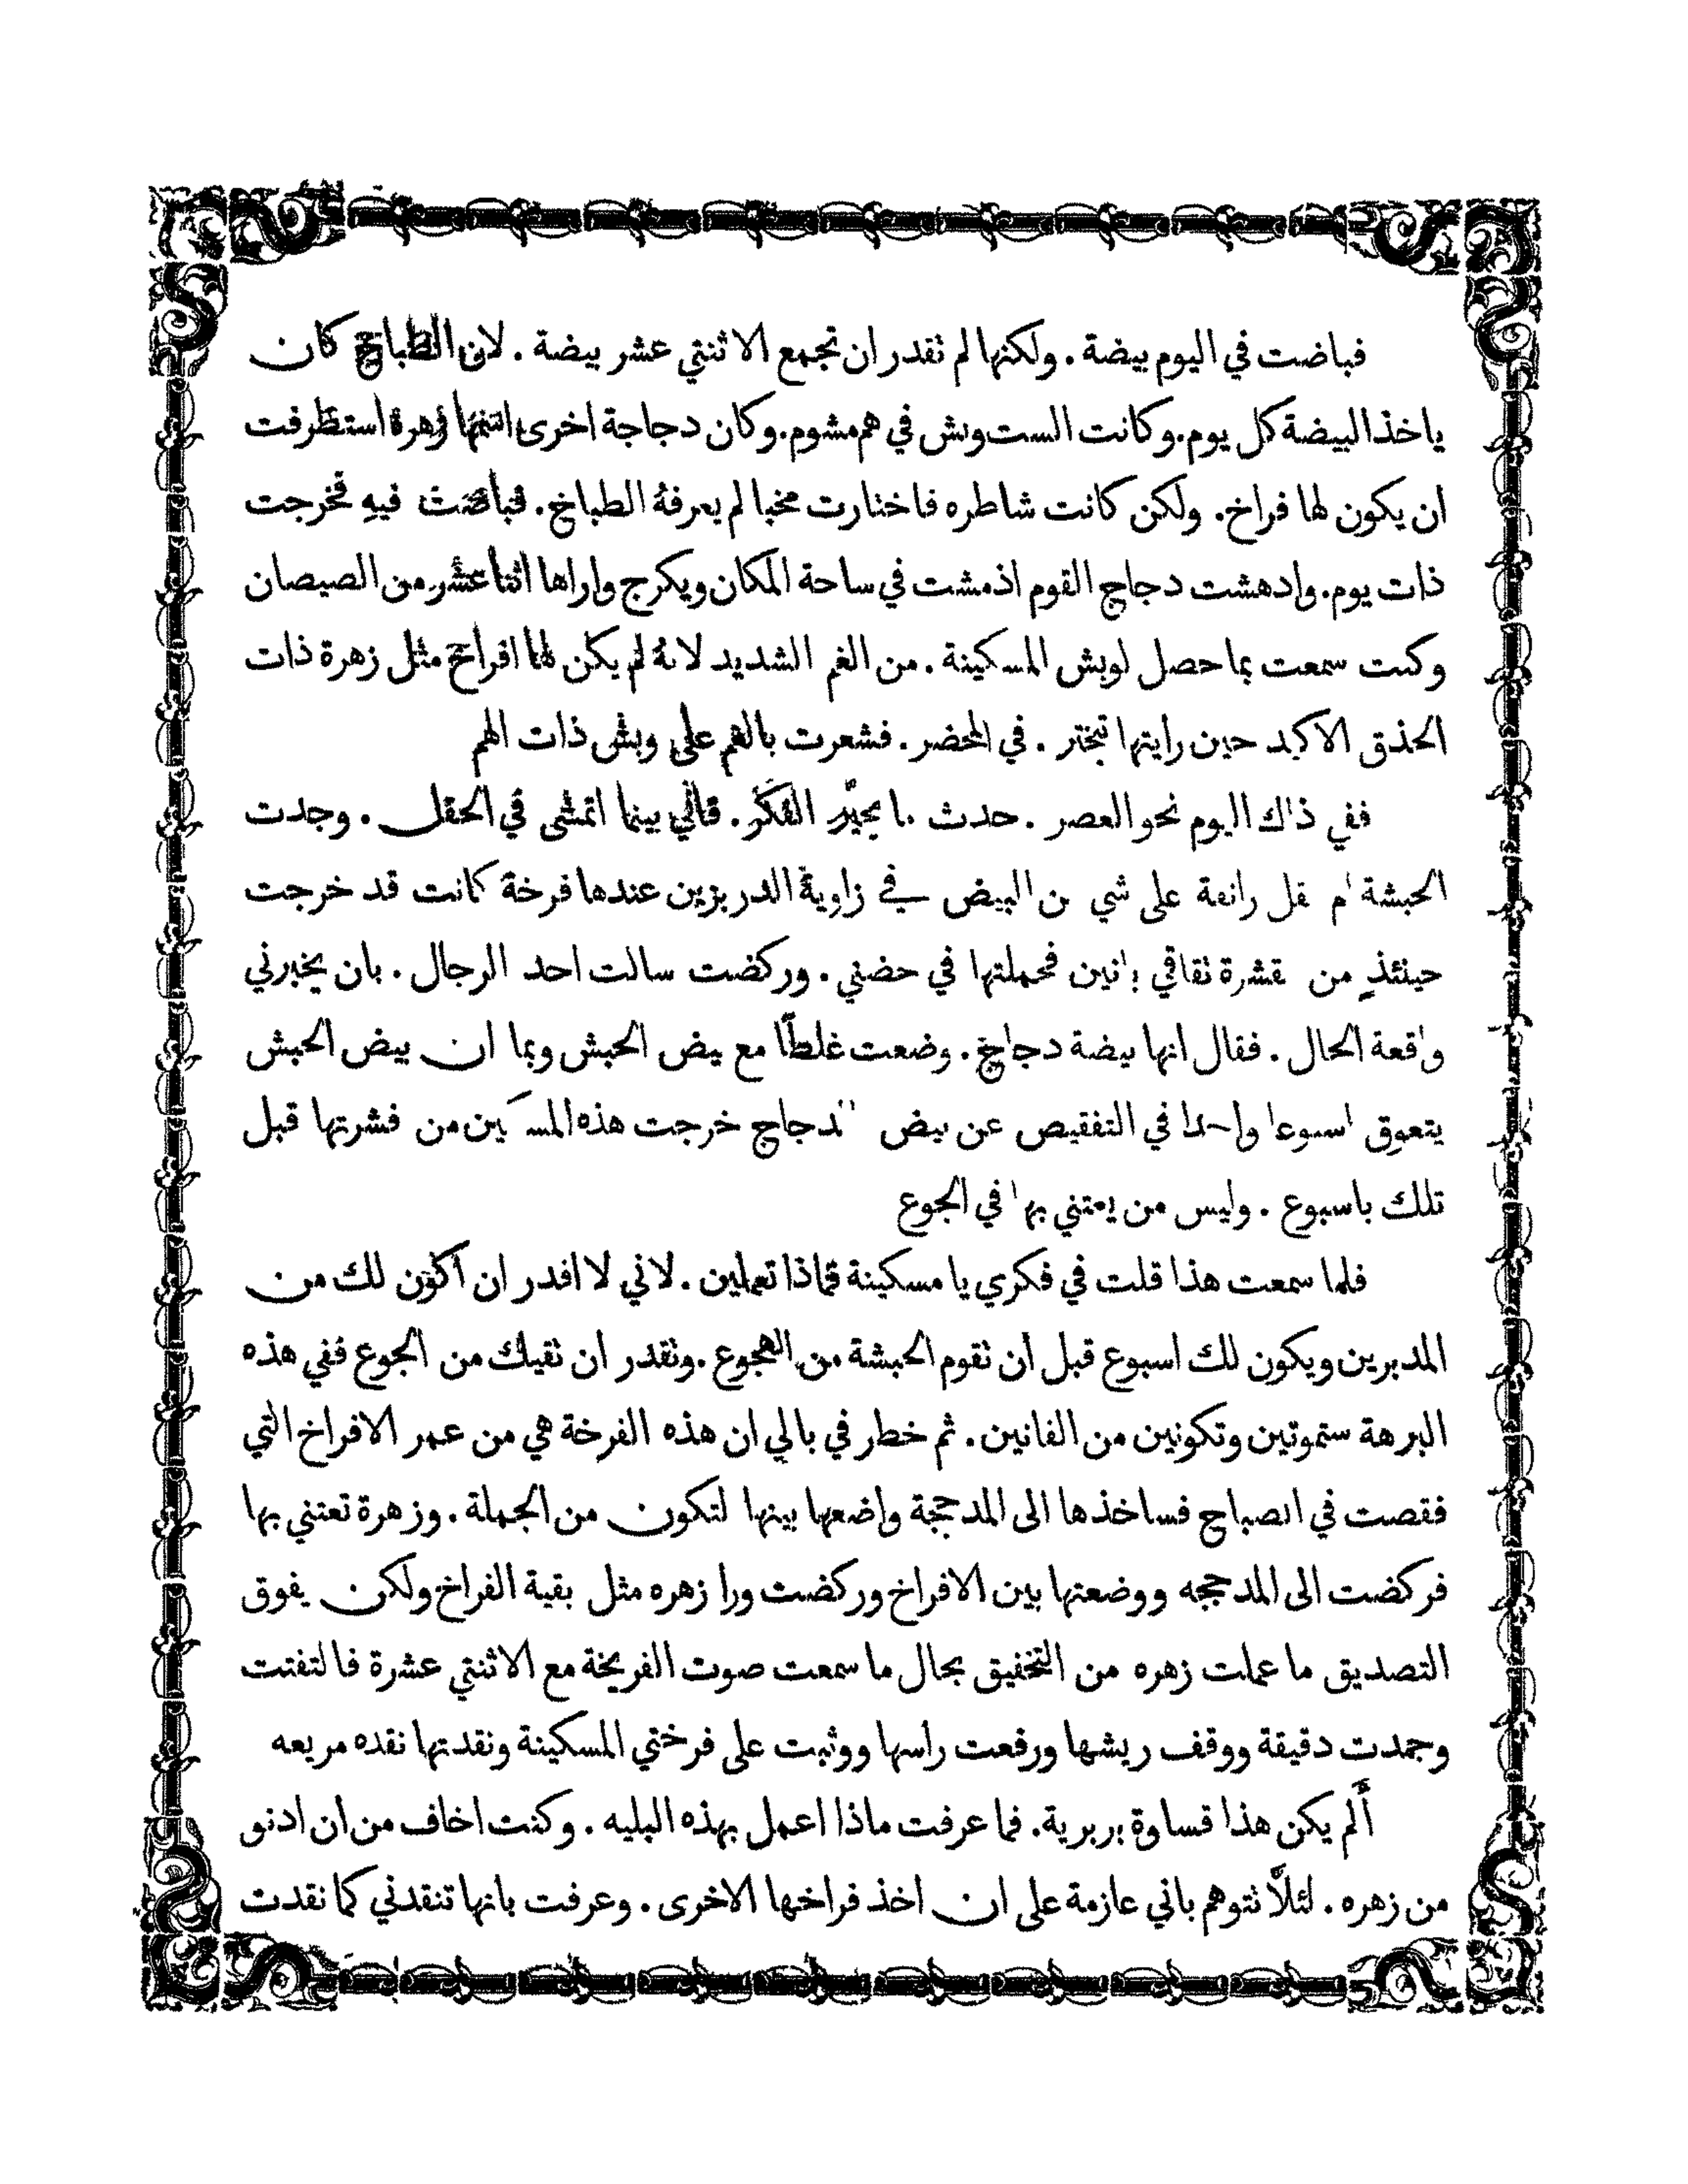 فباضت في اليوم بيضة . ولكنها لم تقدر ان تجمع الاثنتي عشر بيضة . لان الطباخ كان
ياخذ البيضة كل يوم. وكانت الست وبش في هم مشوم. وكان دجاجة اخرى اسمها زهرة استظرفت
ان يكون لها فراخ. ولكن كانت شاطره فاختارت مخبا لم يعرفهُ الطباخ. فباضت فيهِ فخرجت
ذات يوم. وادهشت دجاج القوم اذ مشت في ساحة المكان ويكرج واراها اثنا عشر من الصيصان
وكنت سمعت بما حصل لوبش المسكينة . من الغم الشديد لانهُ لم يكن لها افراخ مثل زهرة ذات
الحذق الاكيد حين رايتها تبختر . في المحضر . فشعرت بالهم على وبش ذات الهم
ففي ذاك اليوم نحو العصر . حدث ما يحيّر الفكر . فاني بينما اتمشى في الحقل . وجدت
الحبشة على شي من البيض في زاوية الدربزين عندها فرخة كانت قد خرجت
حينئذٍ من نقاقي فحملتها في حضني . وركضت سالت احد الرجال . بان يخبرني
واقعة الحال . فقال انها بيضة دجاج . وضعت غلطًا مع بيض الحبش وبما ان بيض الحبش
يتعوق اسبوعا واحدا في التفقيص عن بيض الدجاج خرجت هذه المسكين من قشرتها قبل
تلك باسبوع . وليس من يعتني بها في الجوع
فلما سمعت هذا قلت في فكري يا مسكينة فماذا تعملين . لاني لا اقدر ان أكون لك من
المدبرين ويكون لك اسبوع قبل ان تقوم الحبشة من الهجوع . وتقدر ان تقيك من الجوع ففي هذه
البرهة ستموتين وتكونين من الفانين . ثم خطر في بالي ان هذه الفرخة هي من عمر الافراخ التي
فقصت في الصباح فساخذها الى المدججة واضعها بينها لتكون من الجملة . وزهرة تعتني بها
فركضت الى المدججه ووضعتها بين الافراخ وركضت ورا زهره مثل بقية الفراخ ولكن يفوق
التصديق ما عملت زهره من التخفيق بحال ما سمعت صوت الفريخة مع الاثنتي عشرة فالتفتت
وجمدت دقيقة ووقف ريشها ورفعت راسها ووثبت على فرختي المسكينة ونقدتها نقده مريعه
أَلم يكن هذا قساوة بربرية. فما عرفت ماذا اعمل بهذه البليه . وكنت اخاف من ان ادنو
من زهره . لئلاَّ تتوهم باني عازمة على ان اخذ فراخها الاخرى . وعرفت بانها تنقدني كما نقدت